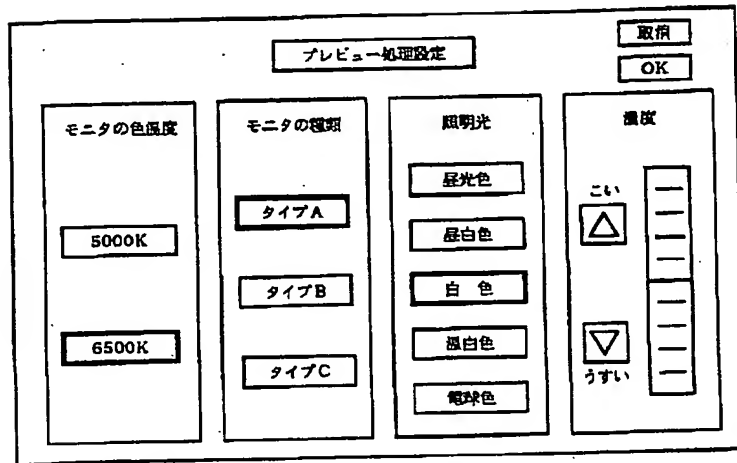 プレビュー処理設定
取消
OK
モニタの色温度
5000K
6500K
モニタの種類
タイプA
タイプB
タイプC
照明光
昼光色
昼白色
白 色
温白色
電球色
濃度
こい
うすい